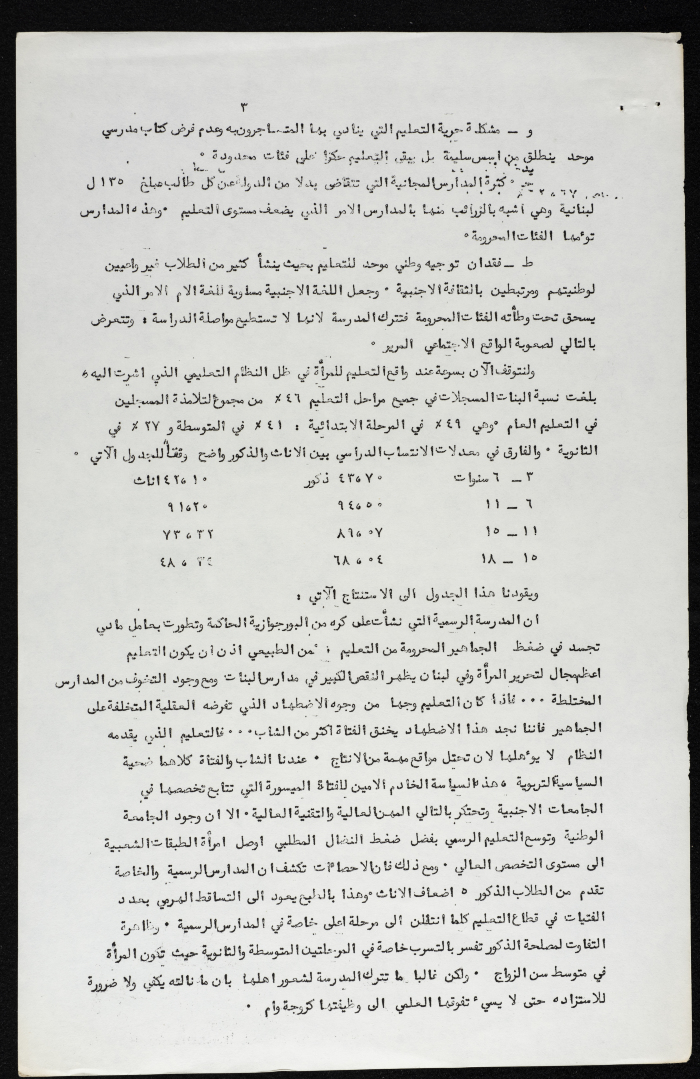 ٣
و ــ مشكلة حرية التعليم التي ينادي بها المتاجرون به وعدم فرض كتاب مدرسي
موحد ينطلق من اسس سليمة بل يبقى التعليم حكرا على فئات محدودة ٠
كثرة المدارس المجانية التي تتقاضى بدلا من الدولة عن كل طالب مبلغ ١٣٥ ل
لبنانية وهي اشبه بالزرائب منها بالمدارس الامر الذي يضعف مستوى التعليم ٠ وهذه المدارس
تؤمها الفئات المحرومة ٠
ط ــ فقدان توجيه وطني موحد للتعليم بحيث ينشأ كثير من الطلاب غير واعيين
لوطنيتهم ومرتبطين بالثقافة الاجنبية ٠ وجعل اللغة الاجنبية مساوية للغة الام الامر الذي
يسحق تحت وطأته الفئات المحرومة فتترك المدرسة لانها لا تستطيع مواصلة الدراسة : وتتعرض
بالتالي لصعوبة الواقع الاجتماعي المرير ٠
ولنتوقف الآن بسرعة عند واقع التعليم للمرأة في ظل النظام التعليمي الذي اشرت اليه ٥
بلغت نسبة البنات المسجلات في جميع مراحل التعليم ٤٦ ٪ من مجموع التلامذة المسجلين
في التعليم العام ٠ وهي ٤٩ ٪ في المرحلة الابتدائية : ٤١ ٪ في المتوسطة و ٢٧ ٪ في
الثانوية ٠ والفارق في معدلات الانتساب الدراسي بين الاناث والذكور واضح وفقا للجدول الآتي ٠
٣ ــ ٦ سنوات ٤٣٥٧٠ ذكور ٤٢٥١٠ اناث
٦ ــ ١١ ٩٤٥٥٠ ٩١٥٢٠
١١ ــ ١٥ ٨٦٥٠٧ ٧٣٥٣٢
١٥ ــ ١٨ ٦٨٥٠٤ ٤٨٥٣٤
ويقودنا هذا الجدول الى الاستنتاج الآتي :
ان المدرسة الرسمية التي نشأت على كره من البورجوازية الحاكمة وتطورت بعامل مادي
تجسد في ضغط الجماهير المحرومة من التعليم ؛ فمن الطبيعي اذن ان يكون التعليم
اعظم مجال لتحرير المرأة وفي لبنان يظهر النقص الكبير في مدارس البنات ومع وجود التخوف من المدارس
المختلطة ٠٠٠ فاذا كان التعليم وجها من وجوه الاضطهاد الذي تفرضه العقلية المتخلفة على
الجماهير فاننا نجد هذا الاضطهاد يخنق الفتاة اكثر من الشاب ٠٠٠ فالتعليم الذي يقدمه
النظام لا يؤهلها لان تحتل مواقع مهمة من الانتاج ٠ عندنا الشاب والفتاة كلاهما ضحية
السياسة التربوية ٥ هذه السياسة الخادم الامين للفتاة الميسورة التي تتابع تخصصها في
الجامعات الاجنبية وتحتكر بالتالي المهن العالية والتقنية العالية ٠ الا ان وجود الجامعة
الوطنية وتوسع التعليم الرسمي بفضل ضغط النضال المطلبي اوصل امرأة الطبقات الشعبية
الى مستوى التخصص العالي ٠ ومع ذلك فان الاحصاءات تكشف ان المدارس الرسمية والخاصة
تقدم من الطلاب الذكور ٥ اضعاف الاناث ٠ وهذا بالطبع يعود الى التساقط الهرمي بعدد
الفتيات في قطاع التعليم كلما انتقلن الى مرحلة اعلى خاصة في المدارس الرسمية ٠ وظاهرة
التفاوت لمصلحة الذكور تفسر بالتسرب خاصة في المرحلتين المتوسطة والثانوية حيث تكون المرأة
في متوسط سن الزواج ٠ ولكن غالبا ما تترك المدرسة لشعور اهلها بان ما نالته يكفي ولا ضرورة
للاستزاده حتى لا يسيء تفوقها العلمي الى وظيفتها كزوجة وام ٠